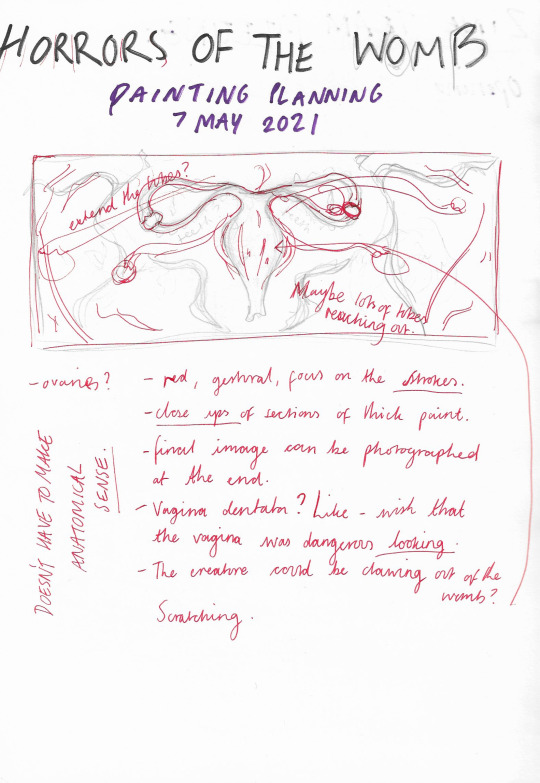 HORRORS OF THE WOMB
PAINTING PLANNING
7 MAY 2021
extend the tubes?
Maybe lots of tubes
reaching out.
- ovaries?
- red, gestural, focus on the strokes.
- close ups of sections of thick paint.
- final image can be photographed
at the end.
- Vagina dentata? Like - wish that
the vagina was dangerous looking.
- The creature could be clawing out of the
womb?
Scratching.
DOESN'T HAVE TO MAKE
ANATOMICAL
SENSE.